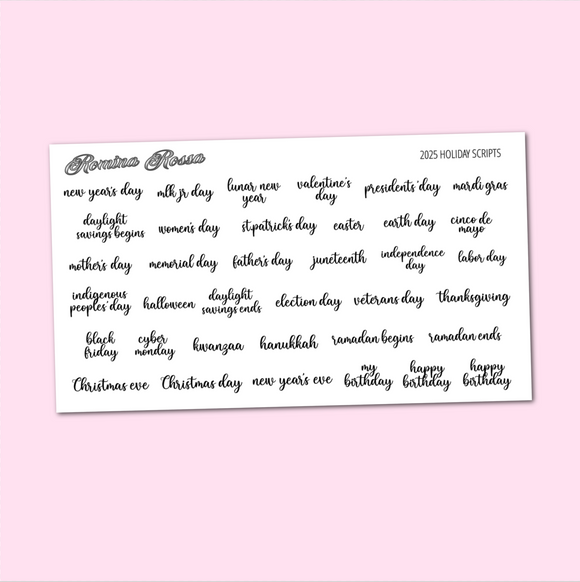 Romina Rossa 2025 HOLIDAY SCRIPTS
new year's day mlk jr day lunar new year valentine's day presidents' day mardi gras
daylight savings begins women's day st.patrick's day easter earth day cinco de mayo
mother's day memorial day father's day juneteenth independence day labor day
indigenous peoples' day halloween daylight savings ends election day veterans day thanksgiving
black friday cyber monday kwanzaa hanukkah ramadan begins ramadan ends
Christmas eve Christmas day new year's eve my birthday happy birthday happy birthday